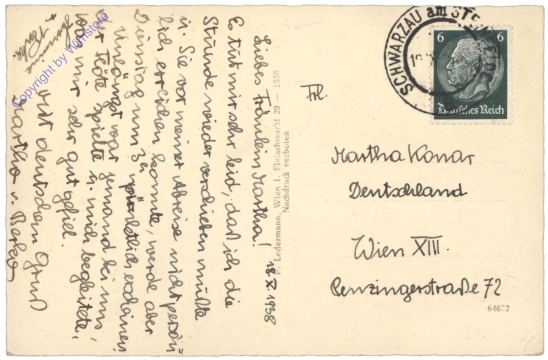 Liebes Fräulein Martha! 18.X.1938
Es tut mir sehr leid, daß ich die
Stunde wieder verschieben mußte
u. Sie vor meiner Abreise nicht persön-
lich erreichen konnte, werde aber
Dienstag um 3h pünktlich erscheinen
Unlängst war jemand bei uns,
der Flöte spielte u. mich begleitete,
was mir sehr gut gefiel.
Mit deutschem Gruß
Martha v.
P. Ledermann, Wien I, Fleischmarkt 20 — 1938
Nachdruck verboten
SCHWARZAU am
6 6
Deutsches Reich
Frl.
Martha Konar
Deutschland
Wien XIII.
Penzingerstraße 72
64672
Copyright by wpmstore